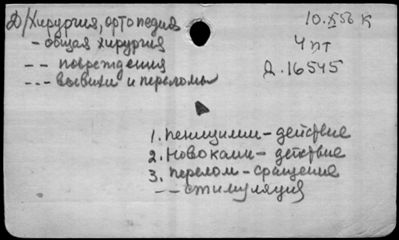 Д/Хирургия, ортопедия
- общая хирургия
-- повреждения
--- вывихи и переломы
10.X56 К
4 пт
Д.16545
1. пенициллин - действие
2. Новокаин - действие
3. перелом - сращение
-- стимуляция